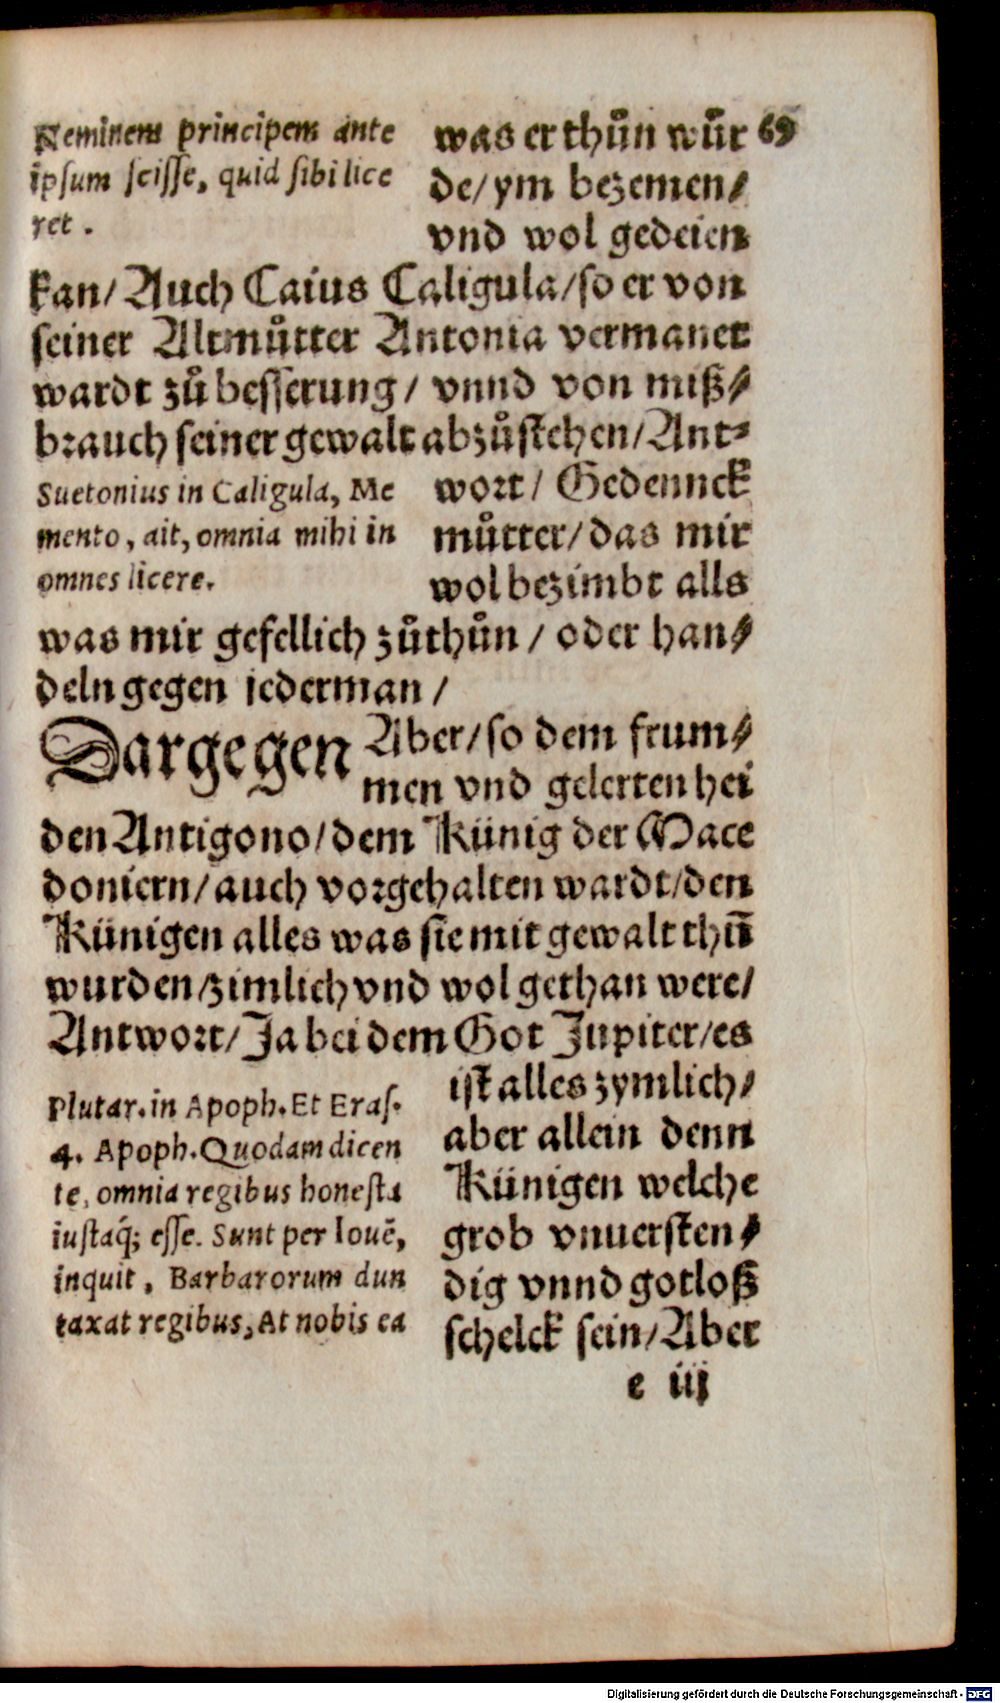 Neminem principem ante
ipsum scisse, quid sibi lice
ret.
was er thůn wůr 69
de/ ym bezemen/
vnd wol gedeien
kan/ Auch Caius Caligula/ so er von
seiner Altmůtter Antonia vermanet
wardt zů besserung/ vnnd von miß⸗
brauch seiner gewalt abzůstehen/ Ant⸗
Suetonius in Caligula, Me
mento, ait, omnia mihi in
omnes licere.
wort/ Gedennck
můtter/ das mir
wol bezimbt alls
was mir gefellich zůthůn/ oder han⸗
deln gegen jederman/
Dargegen Aber/ so dem frum⸗
men vnd gelerten hei
den Antigono/ dem Künig der Mace
doniern/ auch vorgehalten wardt/ den
Künigen alles was sie mit gewalt thuͤ̄
wurden/ zimlich vnd wol gethan were/
Antwort/ Ja bei dem Got Jupiter/ es
Plutar. in Apoph. Et Eras.
4. Apoph. Quodam dicen
te, omnia regibus honesta
iustaq́; esse. Sunt per Iouē,
inquit, Barbarorum dun
taxat regibus, At nobis ea
ist alles zymlich/
aber allein denn
Künigen welche
grob vnuersten⸗
dig vnnd gotloß
schelck sein/ Aber
e iij
Digitalisierung gefördert durch die Deutsche Forschungsgemeinschaft - DFG